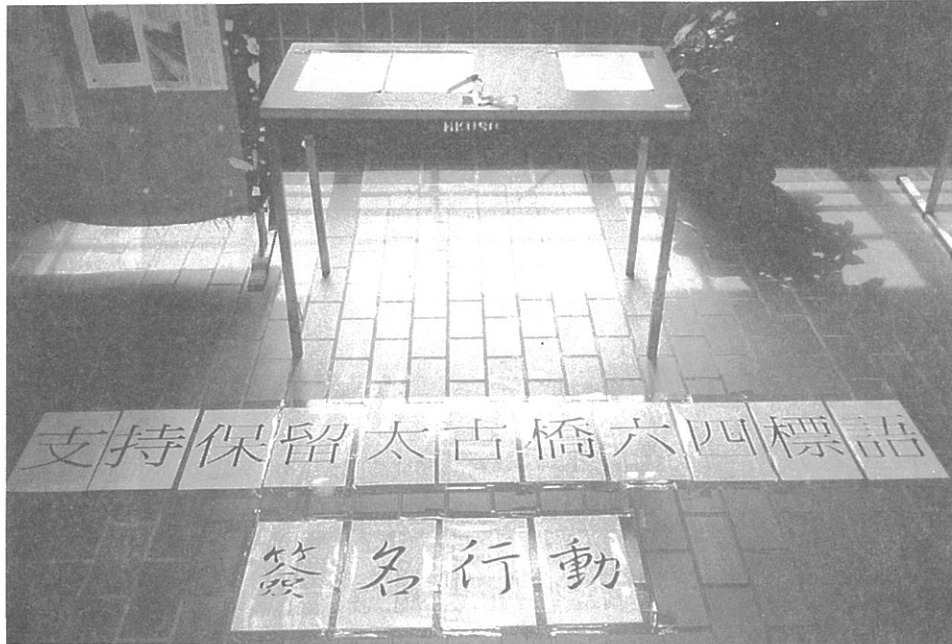 HKUSU
支持保留太古橋六四標語
簽名行動